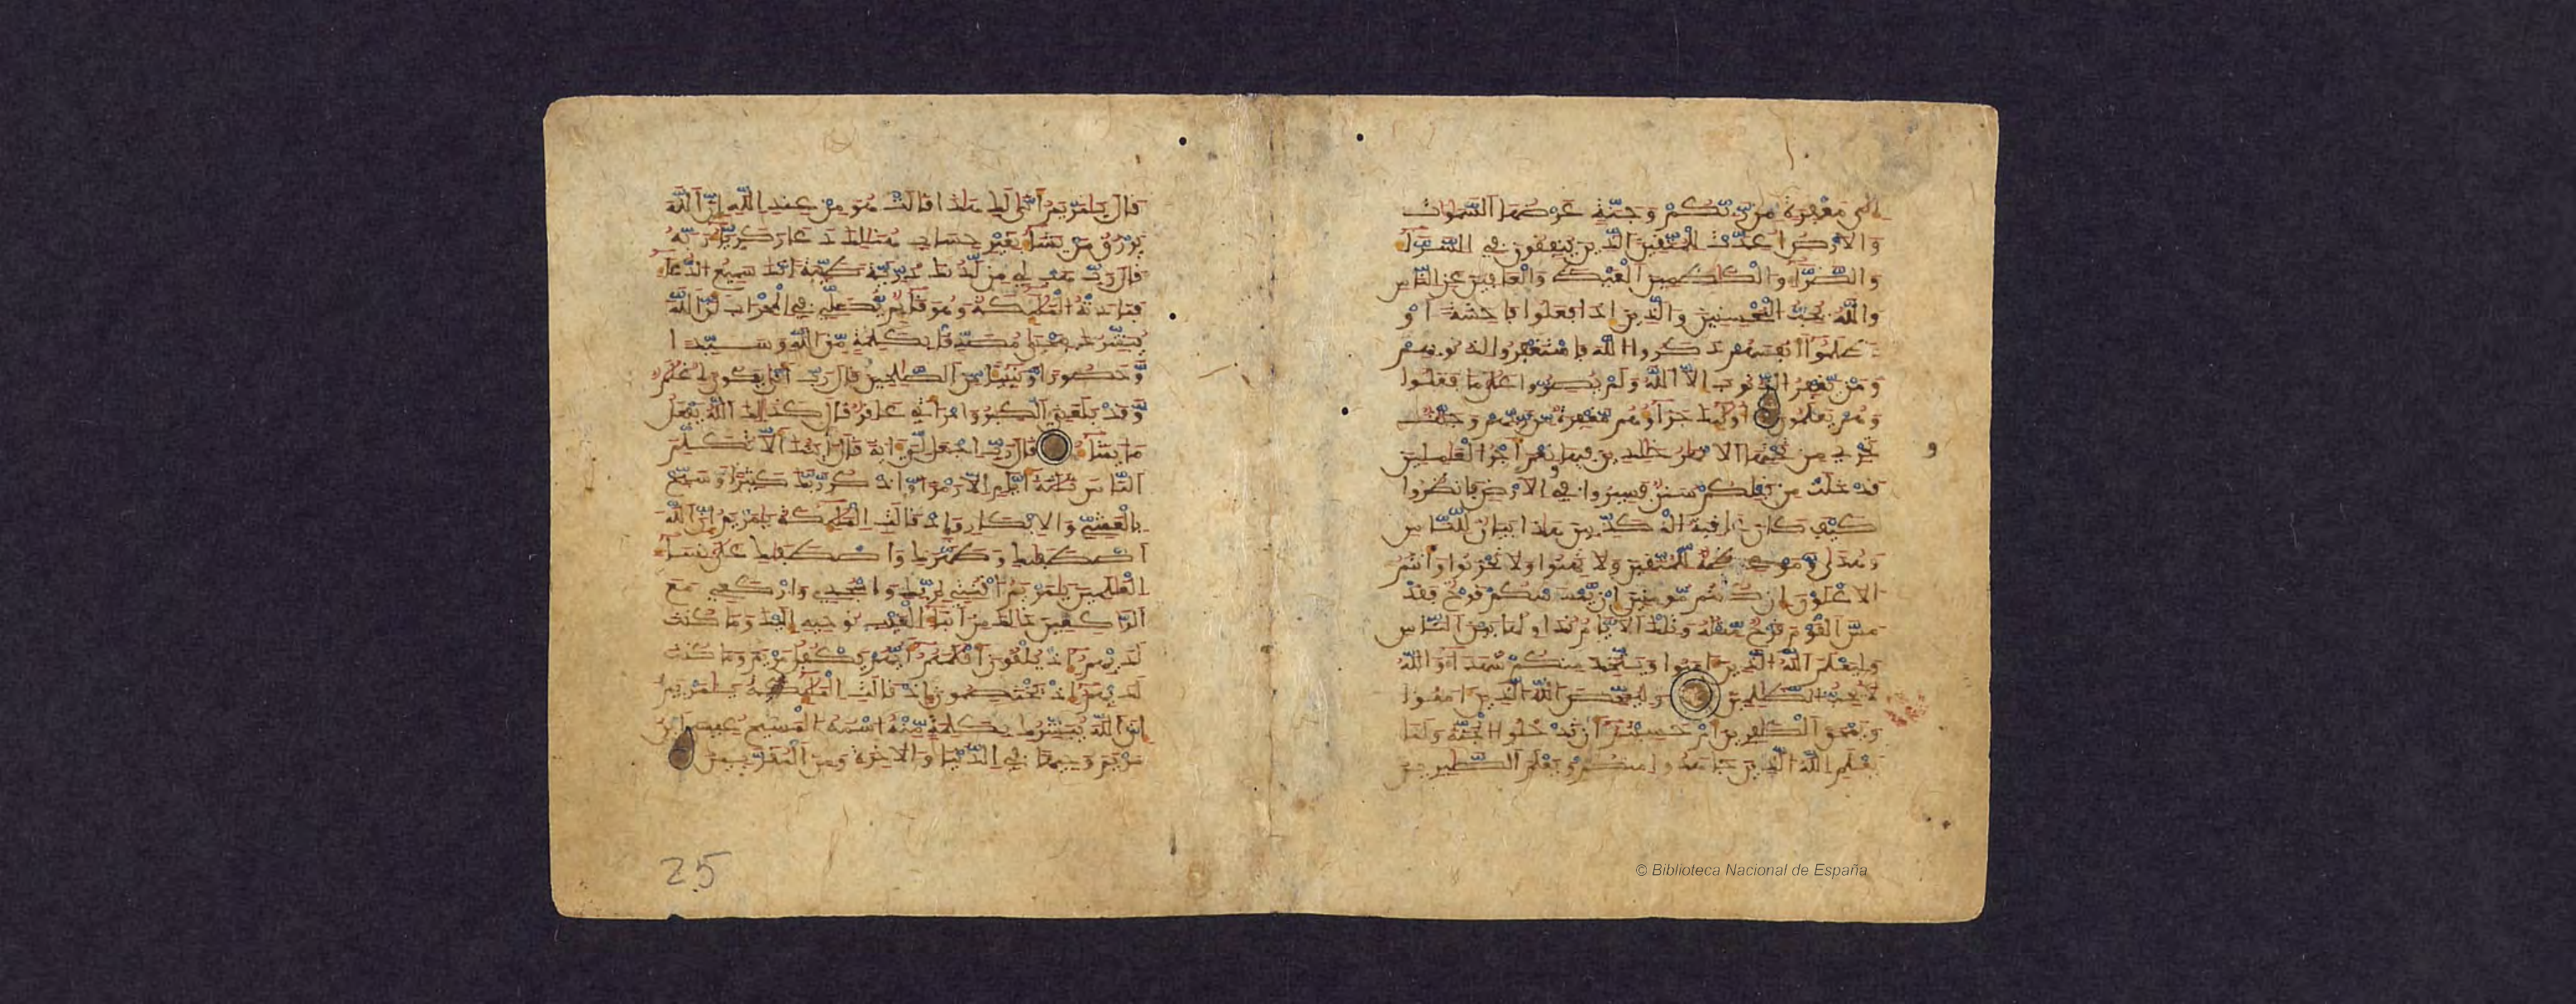 إلى مغفرة من ربكم وجنة عرضها السموات
والارض اعدت للمتقين الذين ينفقون في السرا
والضرا والكاظمين الغيظ والعافين عن الناس
والله يحب المحسنين والذين اذا فعلوا فاحشة او
ظلموا انفسهم ذكروا الله فاستغفروا لذنوبهم
ومن يغفر الذنوب الا الله ولم يصروا على ما فعلوا
وهم يعلمون اوليك جزاوهم مغفرة من ربهم وجنت
تجري من تحتها الانهر خلدين فيها ونعم اجر العملين
قد خلت من قبلكم سنن فسيروا في الارض فانظروا
كيف كان عاقبة المكذبين هاذا بيان للناس
وهدى وموعظة للمتقين ولا تهنوا ولا تحزنوا وانتم
الاعلون ان كنتم مومنين ان يمسسكم قرح فقد
مس القوم قرح مثله وتلك الايام نداولها بين الناس
وليعلم الله الذين امنوا ويتخذ منكم شهدا والله
لا يحب الظلمين وليمحص الله الذين امنوا
ويمحق الكفرين ام حسبتم ان تدخلوا الجنة ولما
يعلم الله الذين جاهدوا منكم ويعلم الصبرين
و
قال يمريم انى لك هاذا قالت هو من عند الله ان الله
يرزق من يشا بغير حساب هنالك دعا زكريا ربه
قال رب هب لي من لدنك ذرية طيبة انك سميع الدعا
فنادته المليكة وهو قايم يصلي في المحراب ان الله
يبشرك بيحيى مصدقا بكلمة من الله وسيدا
وحصورا ونبيا من الصلحين قال رب انى يكون لي غلم
وقد بلغني الكبر وامراتي عاقر قال كذلك الله يفعل
ما يشا قال رب اجعل لي اية قال ايتك الا تكلم
الناس ثلثة ايام الا رمزا واذكر ربك كثيرا وسبح
بالعشي والابكار واذ قالت المليكة يمريم ان الله
اصطفيك وطهرك واصطفيك على نسا
العلمين يمريم اقنتي لربك واسجدي واركعي مع
الراكعين ذالك من انبا الغيب نوحيه اليك وما كنت
لديهم اذ يلقون اقلمهم ايهم يكفل مريم وما كنت
لديهم اذ يختصمون اذ قالت المليكة يمريم
ان الله يبشرك بكلمة منه اسمه المسيح عيسى ابن
مريم وجيها في الدنيا والاخرة ومن المقربين
25
© Biblioteca Nacional de España